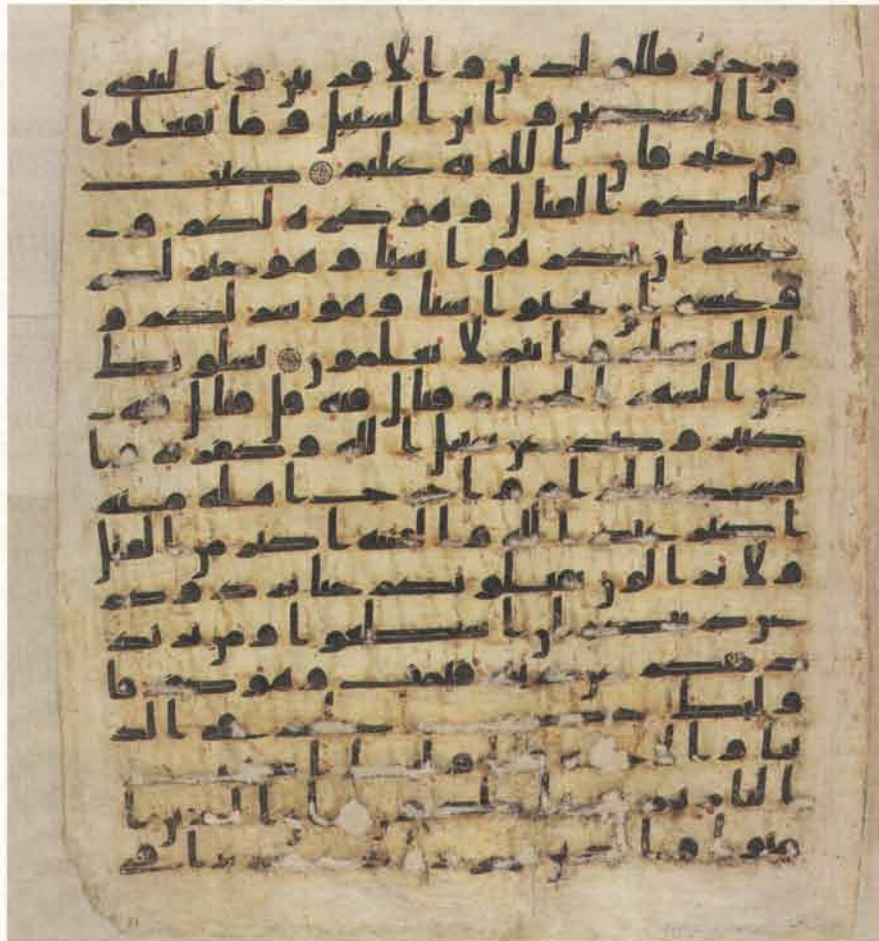 من خير فللولدين والاقربين واليتمى
والمسكين وابن السبيل وما تفعلوا
من خير فان الله به عليم كتب
عليكم القتال وهو كره لكم و
عسى ان تكرهوا شيا وهو خير لكم
وعسى ان تحبوا شيا وهو شر لكم و
الله يعلم وانتم لا تعلمون يسلونك
عن الشهر الحرام قتال فيه قل قتال فيه
كبير وصد عن سبيل الله وكفر به وا
لمسجد الحرام واخراج اهله منه
اكبر عند الله والفتنه اكبر من القتل
ولا يزالون يقتلونكم حتى يردوكم
عن دينكم ان استطعوا ومن يرتد
د منكم عن دينه فيمت وهو كافر فا
وليك حبطت اعملهم في الد
نيا والاخره واوليك اصحب
النار هم فيها خلدون ان الذين ا
منوا والذين هاجروا وجهدوا في